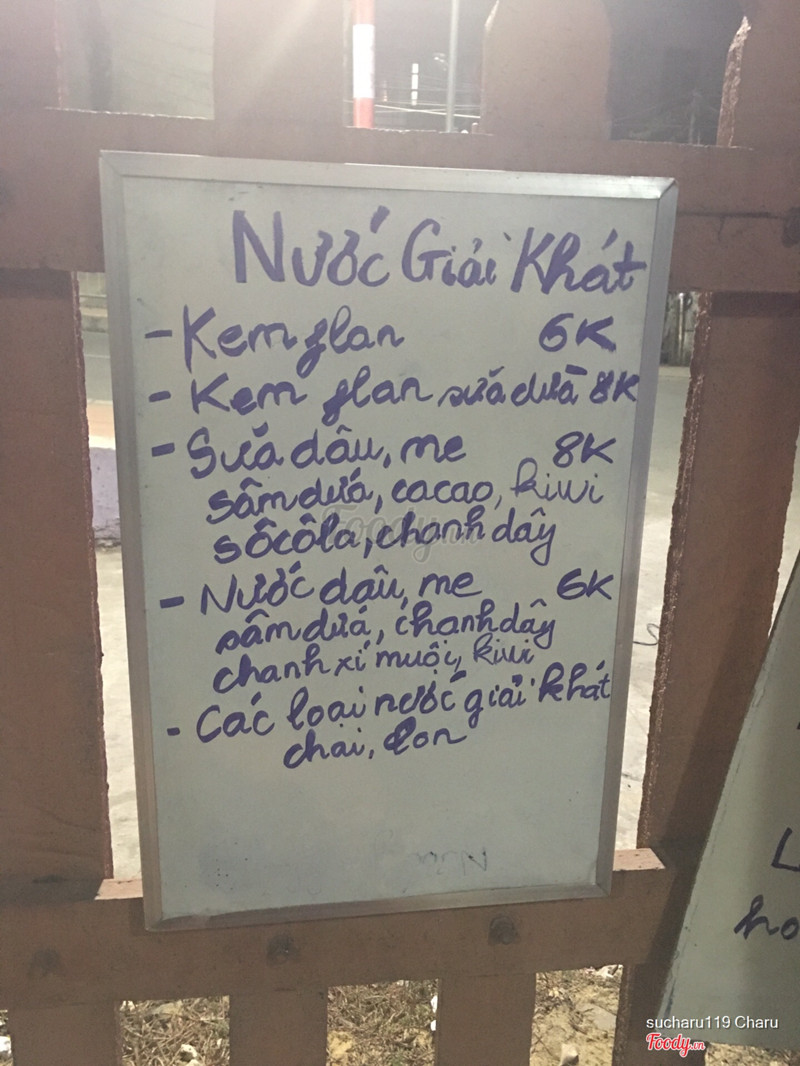 Nước Giải Khát
- Kem flan 6K
- Kem flan sữa dừa 8K
- Sữa dâu, me 8K
sâm dứa, cacao, kiwi
sôcôla, chanh dây
- Nước dâu, me 6K
sâm dứa, chanh dây
chanh xí muội, kiwi
- Các loại nước giải khát
chai, lon
L
ho
Foody.vn
sucharu119 Charu
Foody.vn